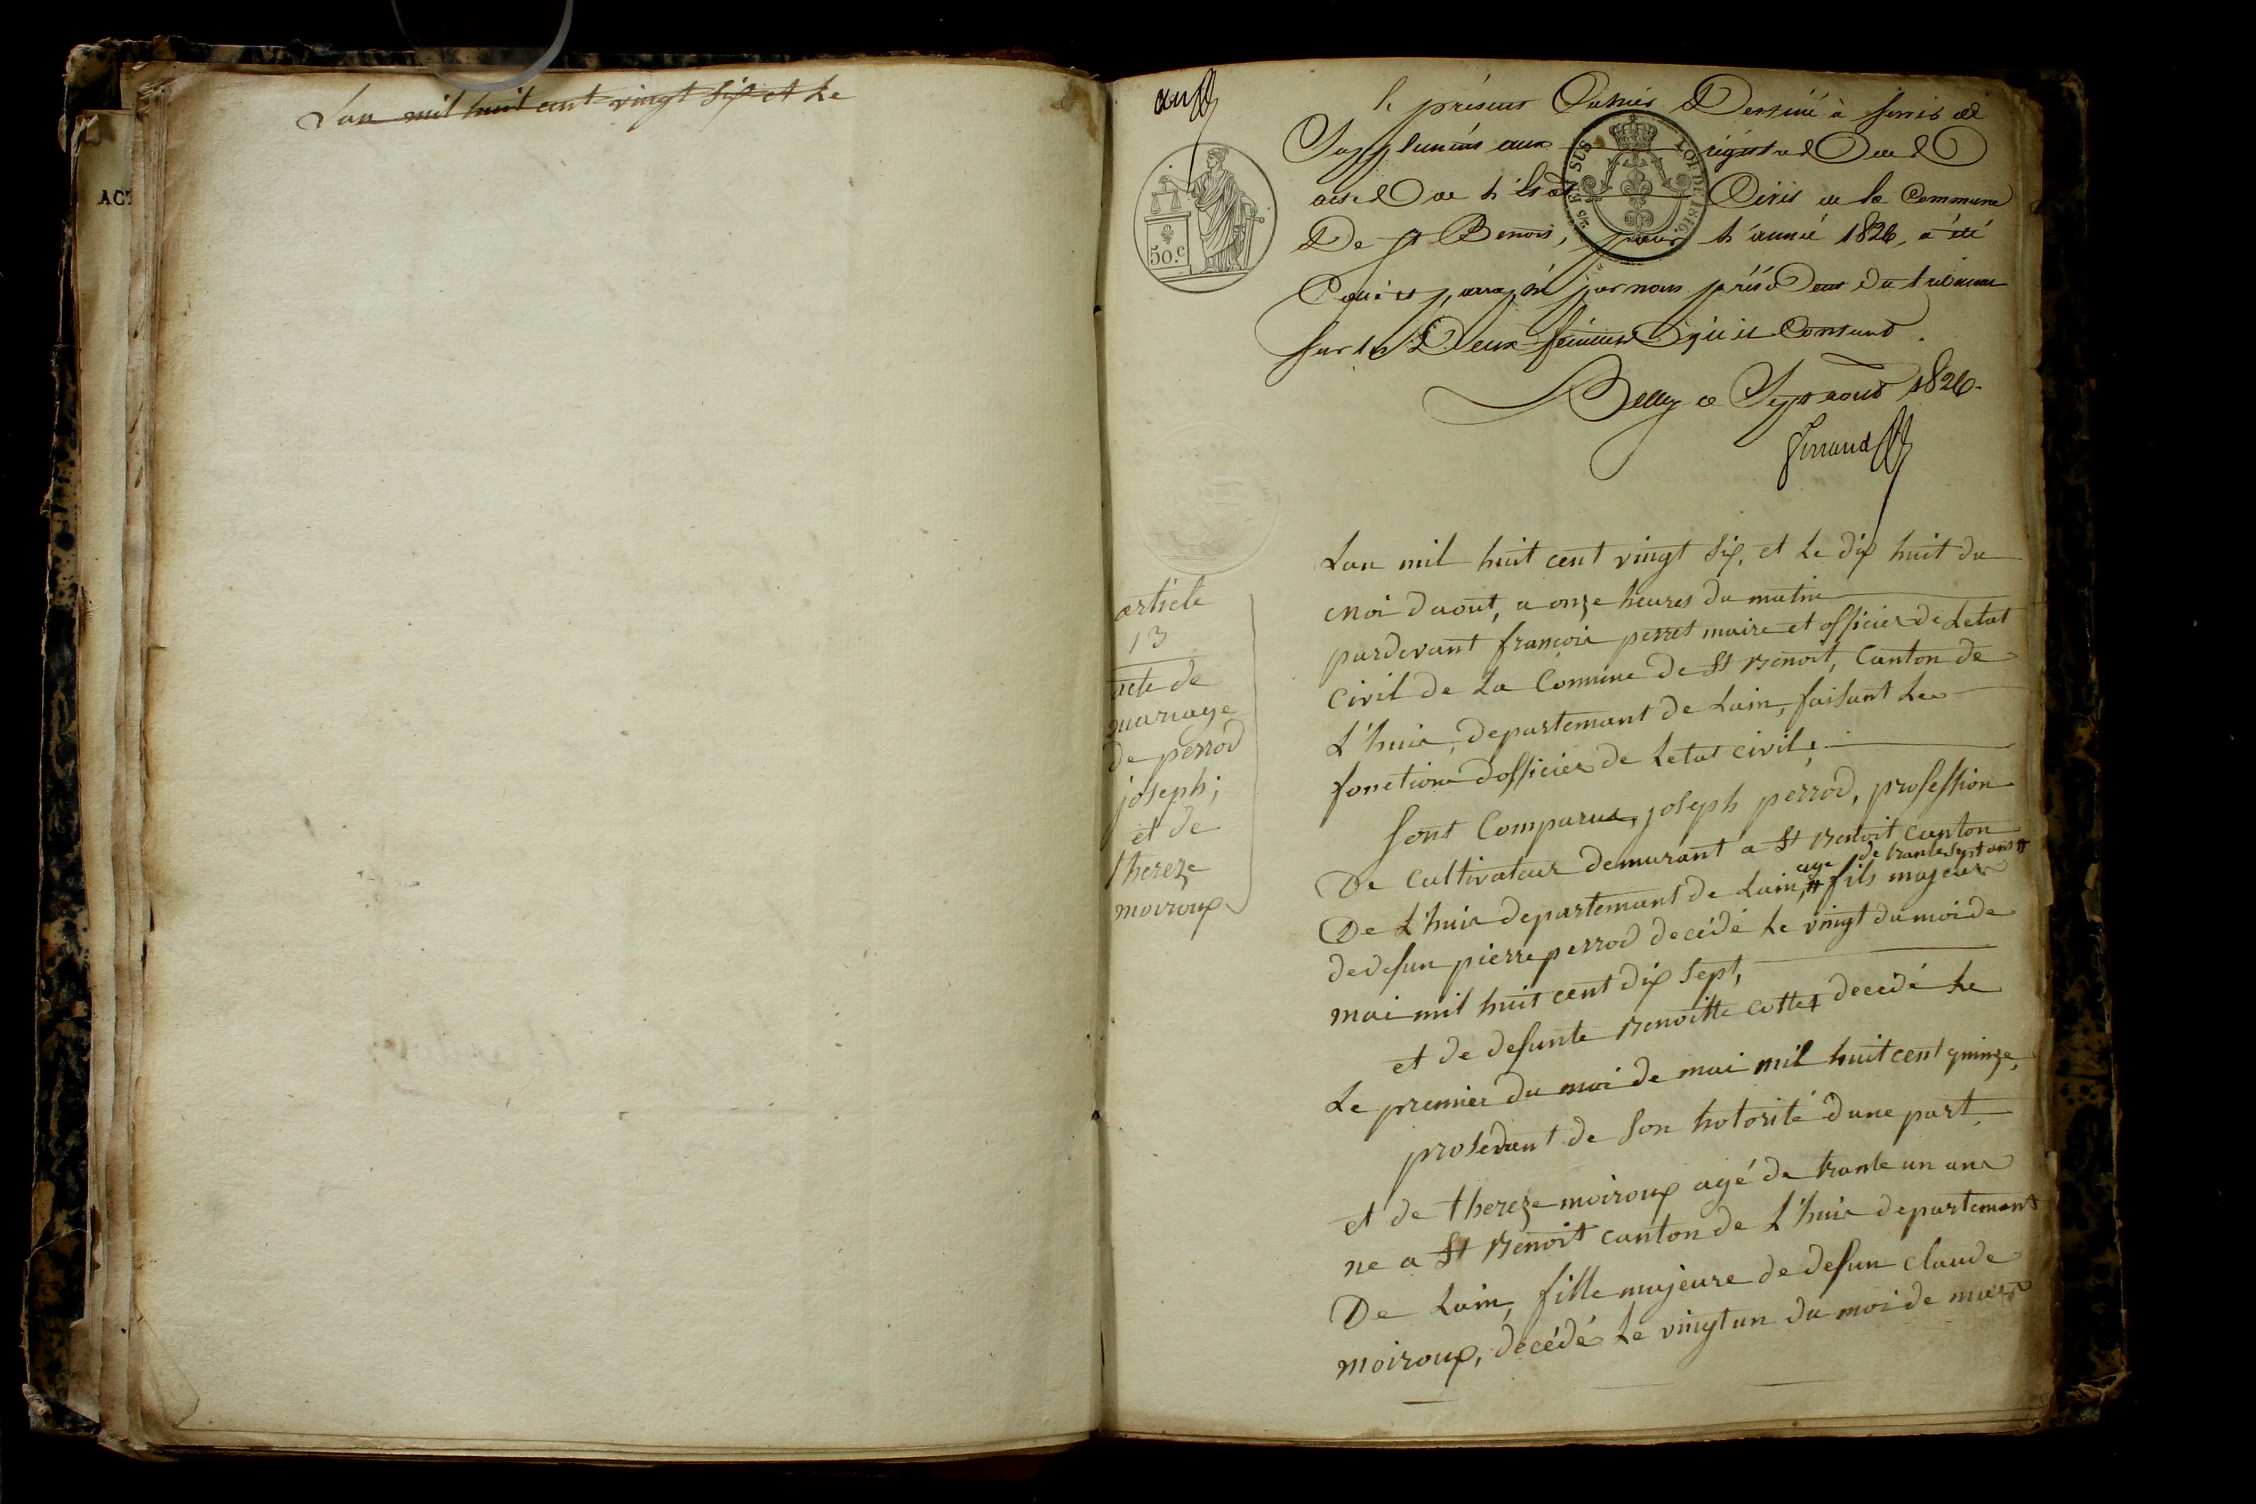 Lan mil huit cent vingt six et Le
ACT
le présent Cahier Destiné à servir de
Supplément aux régistres des
actes de l'état Civil de la Commune
De St Benoit, pour l'année 1826, a été
Coté et paraphé par nous président du tribunal
sur les Deux feuilles qu'il Contient.
Belley ce Sept aout 1826.
Ferrand
50.c
25 EN SUS
LOI DE 1816.
article
13
acte de
mariage
de perrod
joseph;
et de
thereze
moiroux
Lan mil huit cent vingt six, et Le dix huit du
moi daout, a onze heures du matin
pardevant francois perret maire et officier de Letat
civil de La Commune de St Benoit, Canton de
L'huis, departemant de Lain, faisant Les
fonctions dofficier de Letat civil,
sont Comparus, joseph perrod, profession
De cultivateur demurant a St Benoit canton
De L'huis departemant de Lain, # fils majeur
age de trante sept ans #
de defun pierre perrod decédé Le vingt du moi de
mai mil huit cent dix sept,
et de defunte Benoitte cottet decedé Le
Le premier du moi de mai mil huit cent quinze,
prosedant de son hotorité dune part,
et de thereze moiroux agé de trante un ans
ne a St Benoit canton de L'huis departemant
De Lain, fille majeure de defun claude
moiroux, decédé Le vingt un du moi de mars